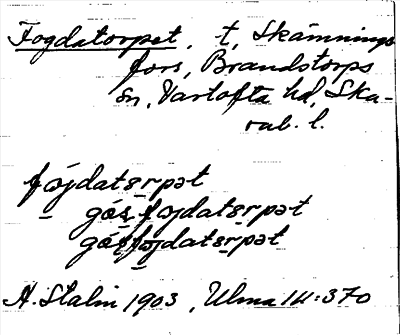 Fogdatorpet, t, Skämnings
fors, Brandstorps
sn, Vartofta hd, Ska-
rab. l.
fωjdatꞩrpət
gǿꞩ fωjdatꞩrpət
gǿꞩfωjdatꞩrpət
A. Stalin 1903, Ulma 14:370